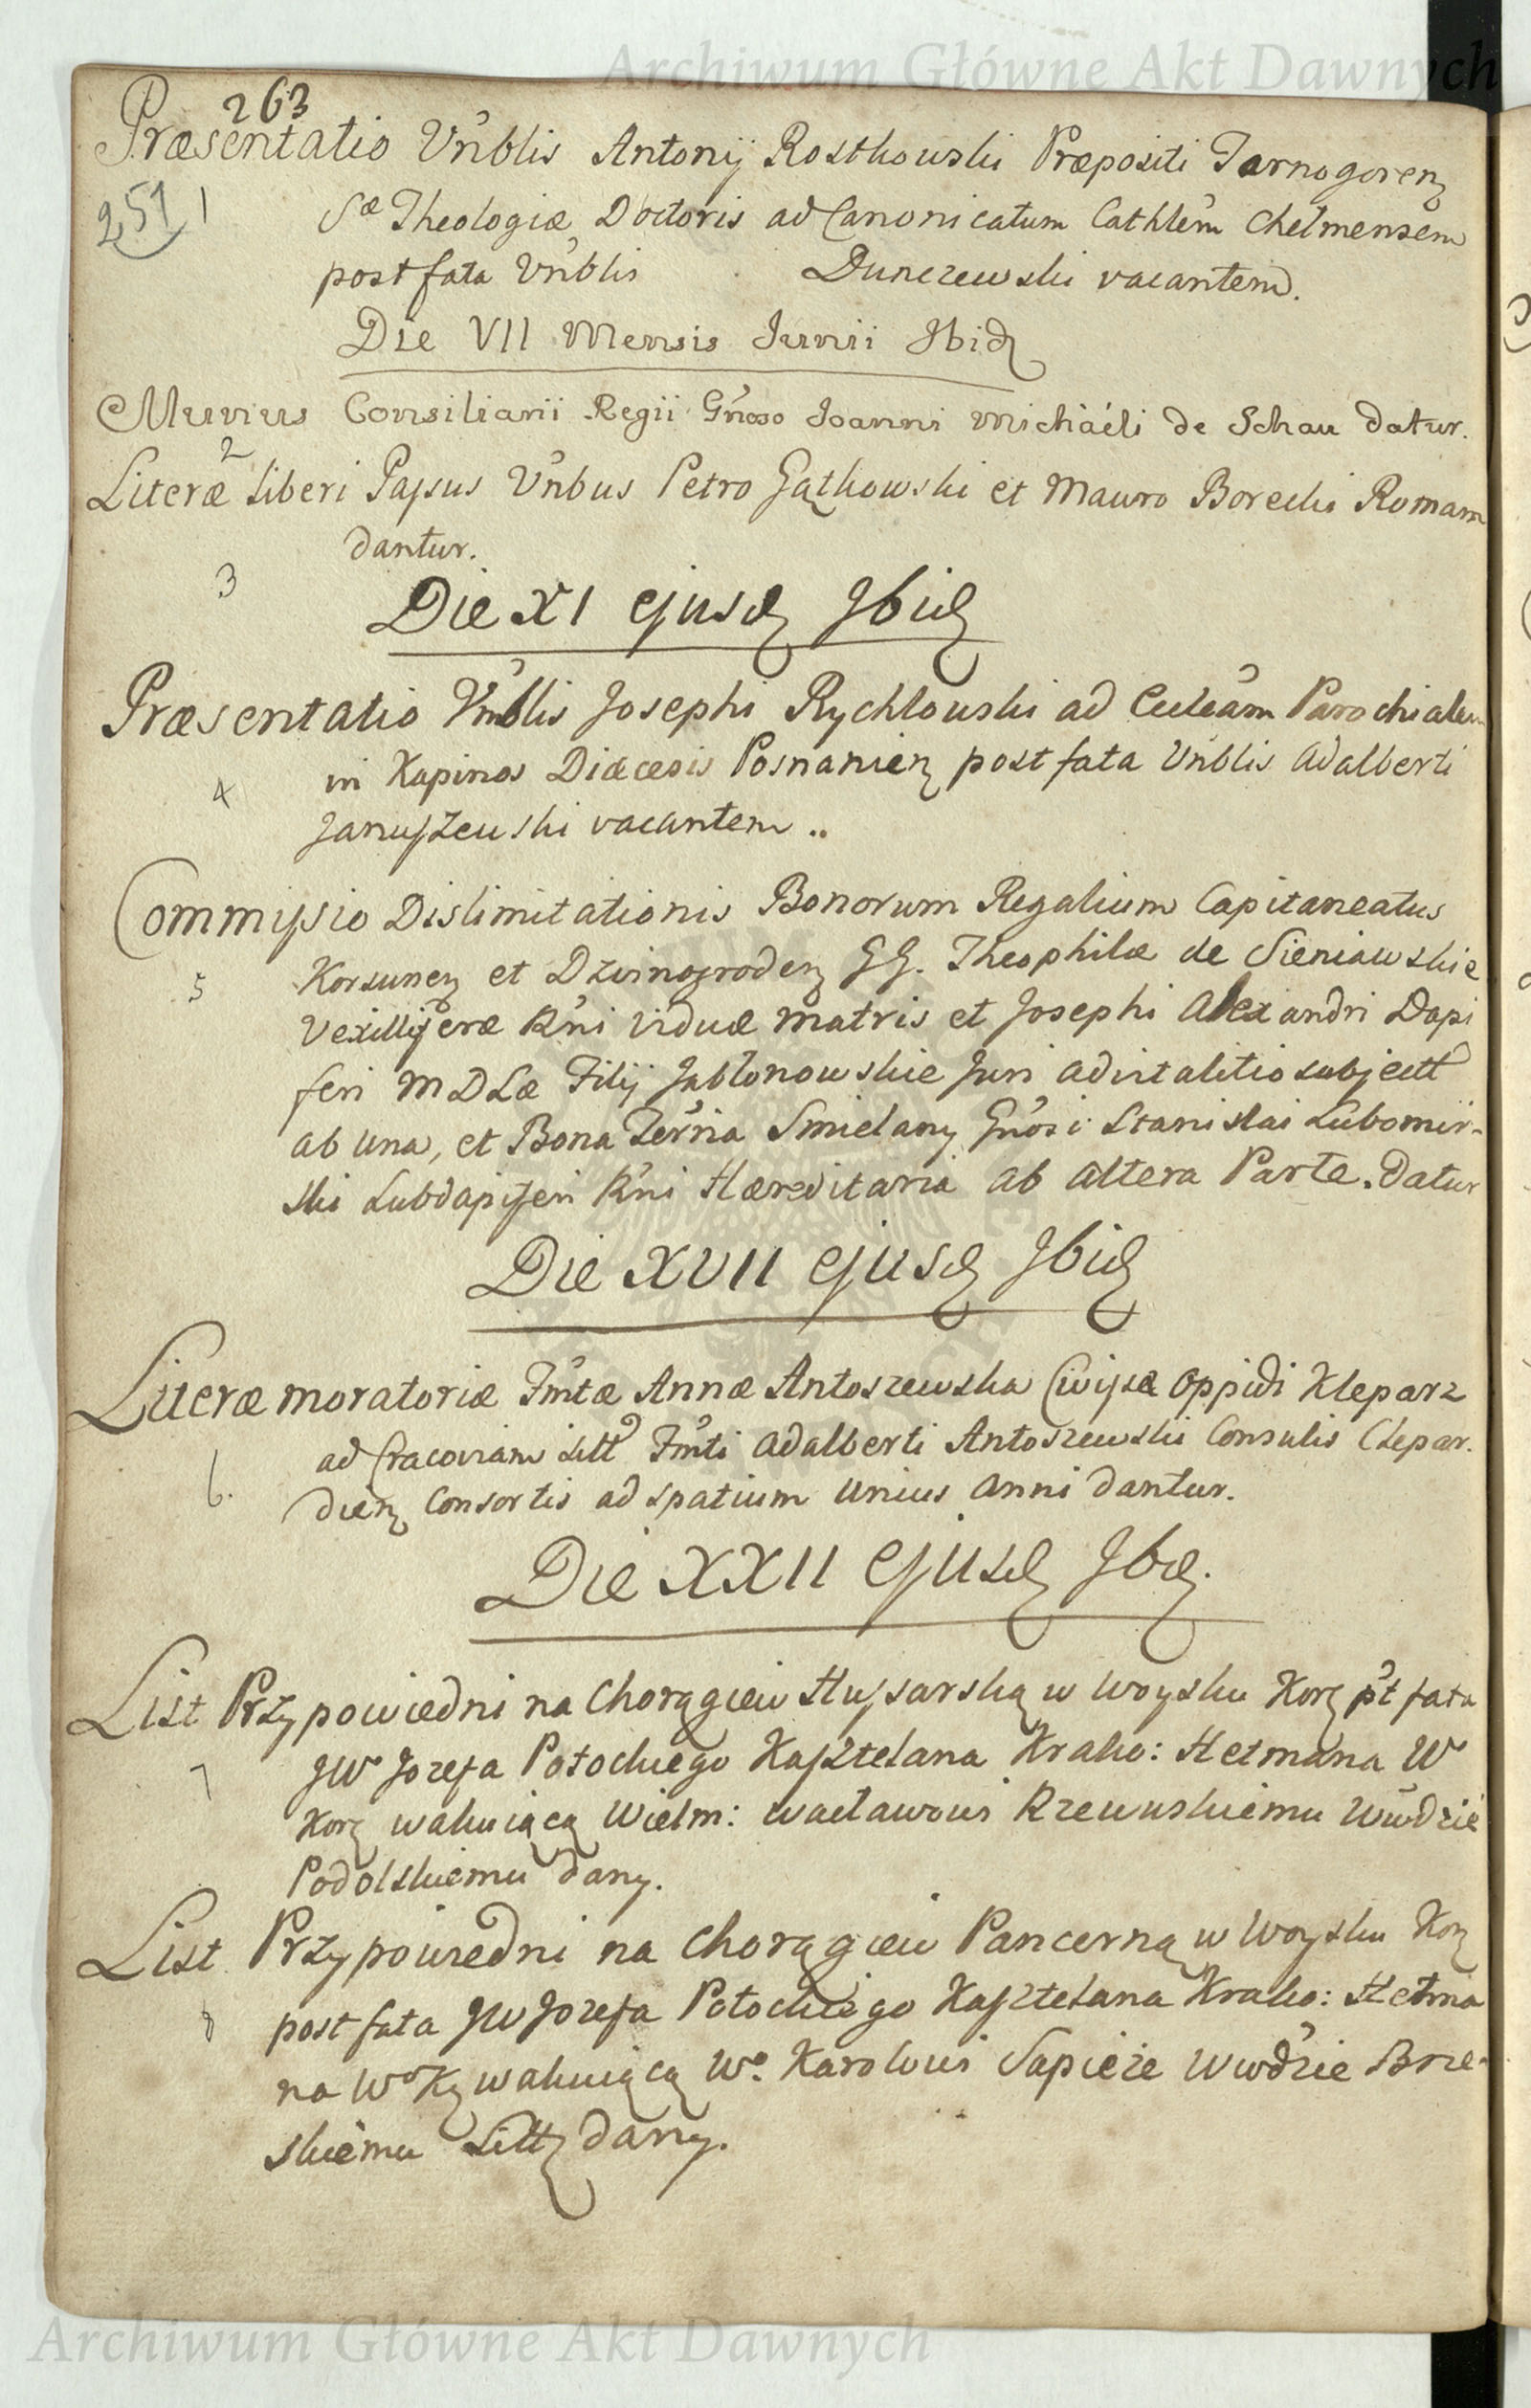 Archiwum Główne Akt Dawnych
263
Præsentatio Vnblis Antonij Rostkowski Præpositi Tarnogoren
251 1
Sæ Theologiæ Doctoris ad Canonicatum Cathlem Chelmensem
post fata Vnblis Dunczewski vacantem.
Die VII Mensis Junii Ibid
Munus Consiliarii Regii Gnoso Joanni Michaéli de Schau datur.
2
Literæ Liberi Passus Vnbus Petro Gątkowski et Mauro Borecki Romam
dantur.
3
Die XI ejusd Ibid
Præsentatio Vnblis Josephi Rychłowski ad Eccleam Parochialem
4
in Kapinos Diæcesis Posnanien post fata Vnblis Adalberti
Januszewski vacantem ..
Commissio Dislimitationis Bonorum Regalium Capitaneatus
5
Korsunen et Dzwinogroden GG. Theophilæ de Sieniawskie
Vexilliferæ Rni Viduæ Matris et Josephi Alexandri Dapi
feri MDLæ Filij Jabłonowskie Juri advitalitio subjectt
ab una, et Bona Terria Smielany Gnosi Stanislai Lubomir-
ski Subdapiferi Rni Hæreditaria ab altera Parte. datur
Die XVII ejusd Ibid
Literæ moratoriæ Fmtæ Annæ Antoszewska Civissæ Oppidi Kleparz
6.
ad Cracoviam sitt Fmti Adalberti Antoszewski Consulis Clepar.
dien Consortis ad spatium unius Anni dantur.
Die XXII ejusd Ibd.
List Przypowiedni na Chorągiew Hussarską w Woysku Kor pt fata
7
JW Jozefa Potockiego Kasztelana Krako: Hetmana W
Kor wakuiącą Wielm: Wacławowi Rzewuskiemu Wwdzie
Podolskiemu dany.
List Przypowiedni na Chorągiew Pancerną w Woysku Kor
8
post fata JW Jozefa Potockiego Kasztelana Krako: Hetma
na Wo K wakuiącą Wo. Karolowi Sapieże Wwdzie Brze-
skiemu Litt dany.
Archiwum Główne Akt Dawnych